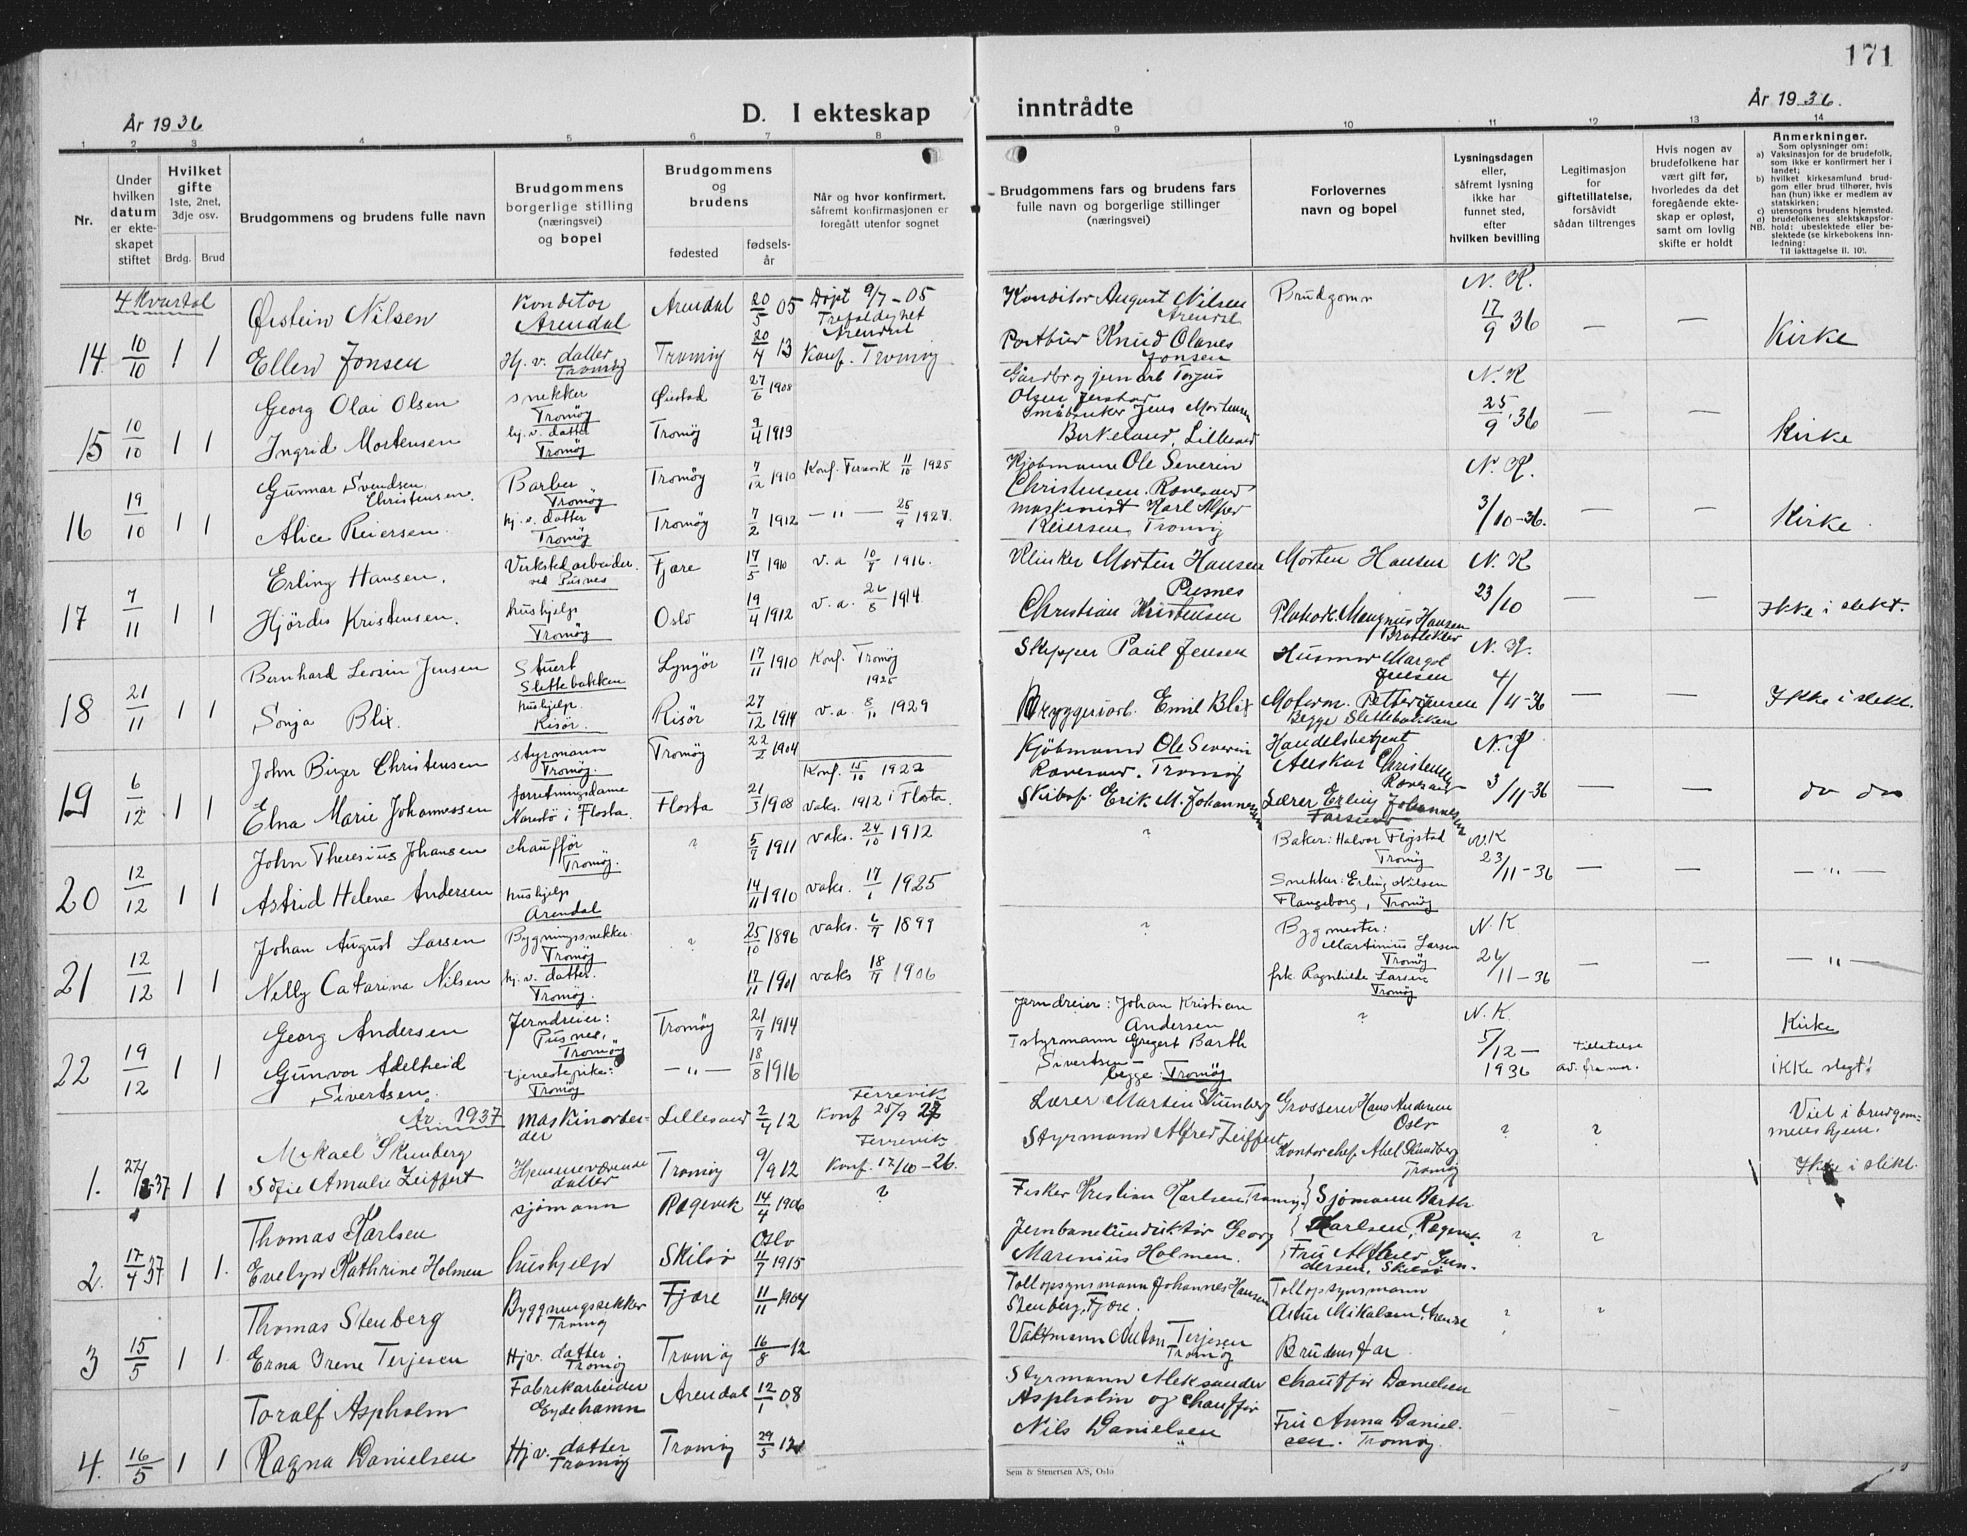 171
År 1936
D. I ekteskap
inntrådte
År 1936.
1 2 3 4 5 6 7 8 9 10 11 12 13 14
Nr.
Under hvilken datum er ekteskapet stiftet
Hvilket gifte
1ste, 2net, 3dje osv.
Brdg. Brud
Brudgommens og brudens fulle navn
Brudgommens borgerlige stilling (næringsvei) og bopel
Brudgommens og brudens
fødested
fødselsår
Når og hvor konfirmert.
såfremt konfirmasjonen er foregått utenfor sognet
Brudgommens fars og brudens fars
fulle navn og borgerlige stillinger
(næringsvei)
Forlovernes
navn og bopel
Lysningsdagen
eller,
såfremt lysning
ikke har
funnet sted,
efter
hvilken bevilling
Legitimasjon
for
giftetillatelse,
forsåvidt
sådan tiltrenges
Hvis nogen av
brudefolkene har
vært gift før,
hvorledes da det
foregående ekteskap er opløst,
samt om lovlig
skifte er holdt
Anmerkninger.
Som oplysninger om:
a) Vaksinasjon for de brudefolk, som ikke er konfirmert her i landet;
b) hvilket kirkesamfund brudgom eller brud tilhører, hvis han (hun) ikke er medlem av statskirken;
c) utensogns brudens hjemsted.
NB. hold: ubeslektede eller beslektede (se kirkebokens innledning:
Til iakttagelse II. 10).
4 Kvartal
Øistein Nilsen Konditor Arendal Arendal 20/5 05 Døpt 9/7-05 Trefoldighet Arendal
Konditor August Nilsen Arendal Brudgomm N.K.
14. 10/10 1 1 Ellen Jonsen Hj. v. datter Tromøy Tromøy 20/4 13 Konf. Tromøy
Knud Olaves Jonsen 17/9 36 — — Kirke
Georg Olai Olsen snekker Tromøy Øiestad 27/6 1908
Olsen N.K
15 10/10 1 1 Ingrid Mortensen hj. v. datter Tromøy Tromøy 9/4 1913
Jens Mortensen Birkeland, Lillesand 25/9 36 — — Kirke
Gunnar Svendsen Christensen. Barber Tromøy Tromøy 7/12 1910 Konf. Færvik 11/10 1925
Kjøbmann Ole Severin Christensen. N.K.
16 19/10 1 1 Alice Reiersen. hj. v. datter Tromøy Tromøy 7/2 1912 — " — 25/9 1927.
maskinist Karl Alfred Reiersen, Tromøy 3/10-36. — — Kirke
Erling Hansen. Verkstedarbeider ved Pusnes Fjære 17/5 1910 v.a 1916.
Klinker Morten Hansen Pusnes Morten Hansen N.K
17 7/11 1 1 Hjördis Kristensen. hushjelp Tromøy Oslo 19/4 1912 v.a. 26/8 1914
Christian Kristensen Hansen 23/10 — — Ikke i slekt.
Bernhard Jensen Stuert Slettebakken Lyngör 17/11 1910 Konf. Tromøy 1925
Skipper Paul Jensen Jensen N.K.
18 21/11 1 1 Sonja Blix. hushjelp. Risør. Risör 27/12 1914 v.a. 1929
Bryggeriarb. Emil Blix Begge Slettebakken 4/11-36 — — Ikke i slekt.
John Birger Christensen styrmann Tromøy. Tromøy 1904 Konf. 15/10 1922
Kjöbmann Ole Severin Tromøy Christensen N.K
19 6/12 1 1 Elna Marie Johannessen forretningsdame Narestö i Flosta. Flosta 21/3 1908 vaks. 1912 i Flosta.
Erik M. Johannessen Lærer Erling Johannessen Farsund 3/11-36 — — do do
John Theresius Johansen chauffør Tromøy. ? 5/9 1911 vaks. 24/10 1912
? Baker: Halvor Fløistad Tromøy N.K
20 12/12 1 1 Astrid Helene Andersen hushjelp Arendal 14/11 1910 vaks. 17/1 1925
Snekker: Erling Nilsen Tromøy 23/11-36 — — — " —
Johan August Larsen Bygningssnekker. Tromøy ? 25/10 1896 vaks. 1899
? Bygmester: Martinius Larsen Tromøy N.K
21 12/12 1 1 Nelly Catarina Nilsen hj. v. datter. Tromøy. 1901 vaks 18/7 1906
frk. Ragnhilde Larsen Tromøy 26/11-36 — — — " —
Georg Andersen Jerndreier: Pusnes, Tromøy Tromøy 21/9 1914
Jerndreier: Johan Kristian Andersen ? N.K. Kirke
22 19/12 1 1 Gunvor Adelheid Sivertsen. tjenestepike: Tromøy — " — 18/8 1916
styrmann Gregert Barth Sivertsen begge: Tromøy 5/12-1936 Tillatelse av. fra mor. ikke slegt!
År 1937
Mikael Stenberg maskinarbeider Lillesand 2/4 12 Færrevik Konf 25/9 27
Lærer Grosserer Hans Andersen Oslo ? ?
1. 37 1 1 Sofie Amalie Zeiffert Hjemmeværende datter Tromøy 9/9 12 Færrevik Konf. 17/10-26.
Styrmann Alfred Zeiffert Kontorchef Tromøy Viet i brudgommens hjem. Ikke i slekt.
Thomas Karlsen sjømann Rægevik 14/4 1906 ?
Fisker Kristian Karlsen Tromøy Sjømann Barth Karlsen,
2. 17/4 37 1 1. Evelyn Kathrine Holmen hushjelp Skilsø Oslo 1915
Jernbanekonduktør Georg Marenius Holmen. Fru Gundersen, Skilsø ? ?
Thomas Stenberg Byggningssnekker Tromøy Fjære 11/11 1904
Tollopsynsmann Johannes Hansen Stenberg, Fjære. Tollopsynsmann ? ?
3 15/5 1 1. Erna Irene Terjesen Hjv. datter Tromøy Tromøy 16/8 - 12
Vaktmann Anton Terjesen Tromøy Brudens far
Toralf Aspholm Fabrikarbeider Eydehamn Arendal 12/1 08
Styrmann Aleksander Aspholm og chauffør chauffør Danielsen — —
4. 16/5 1 1 Ragna Danielsen Hj v. datter Tromøy Tromøy 29/5 12
Nils Danielsen Fru Anna Danielsen. Tromøy.
Sem & Stenersen A/S, Oslo